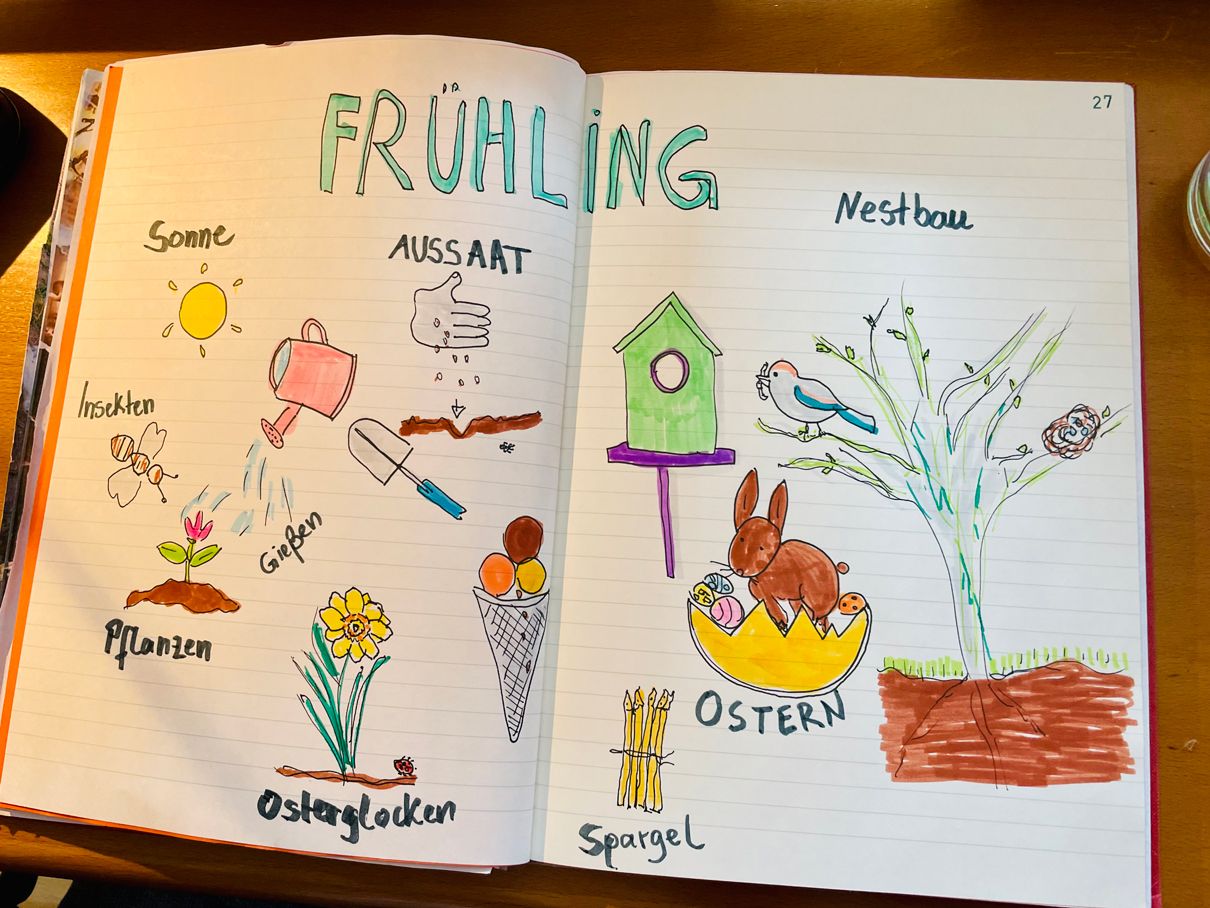 FRÜHLING
27
Sonne
AUSSAAT
Insekten
Gießen
Pflanzen
Osterglocken
Nestbau
OSTERN
Spargel